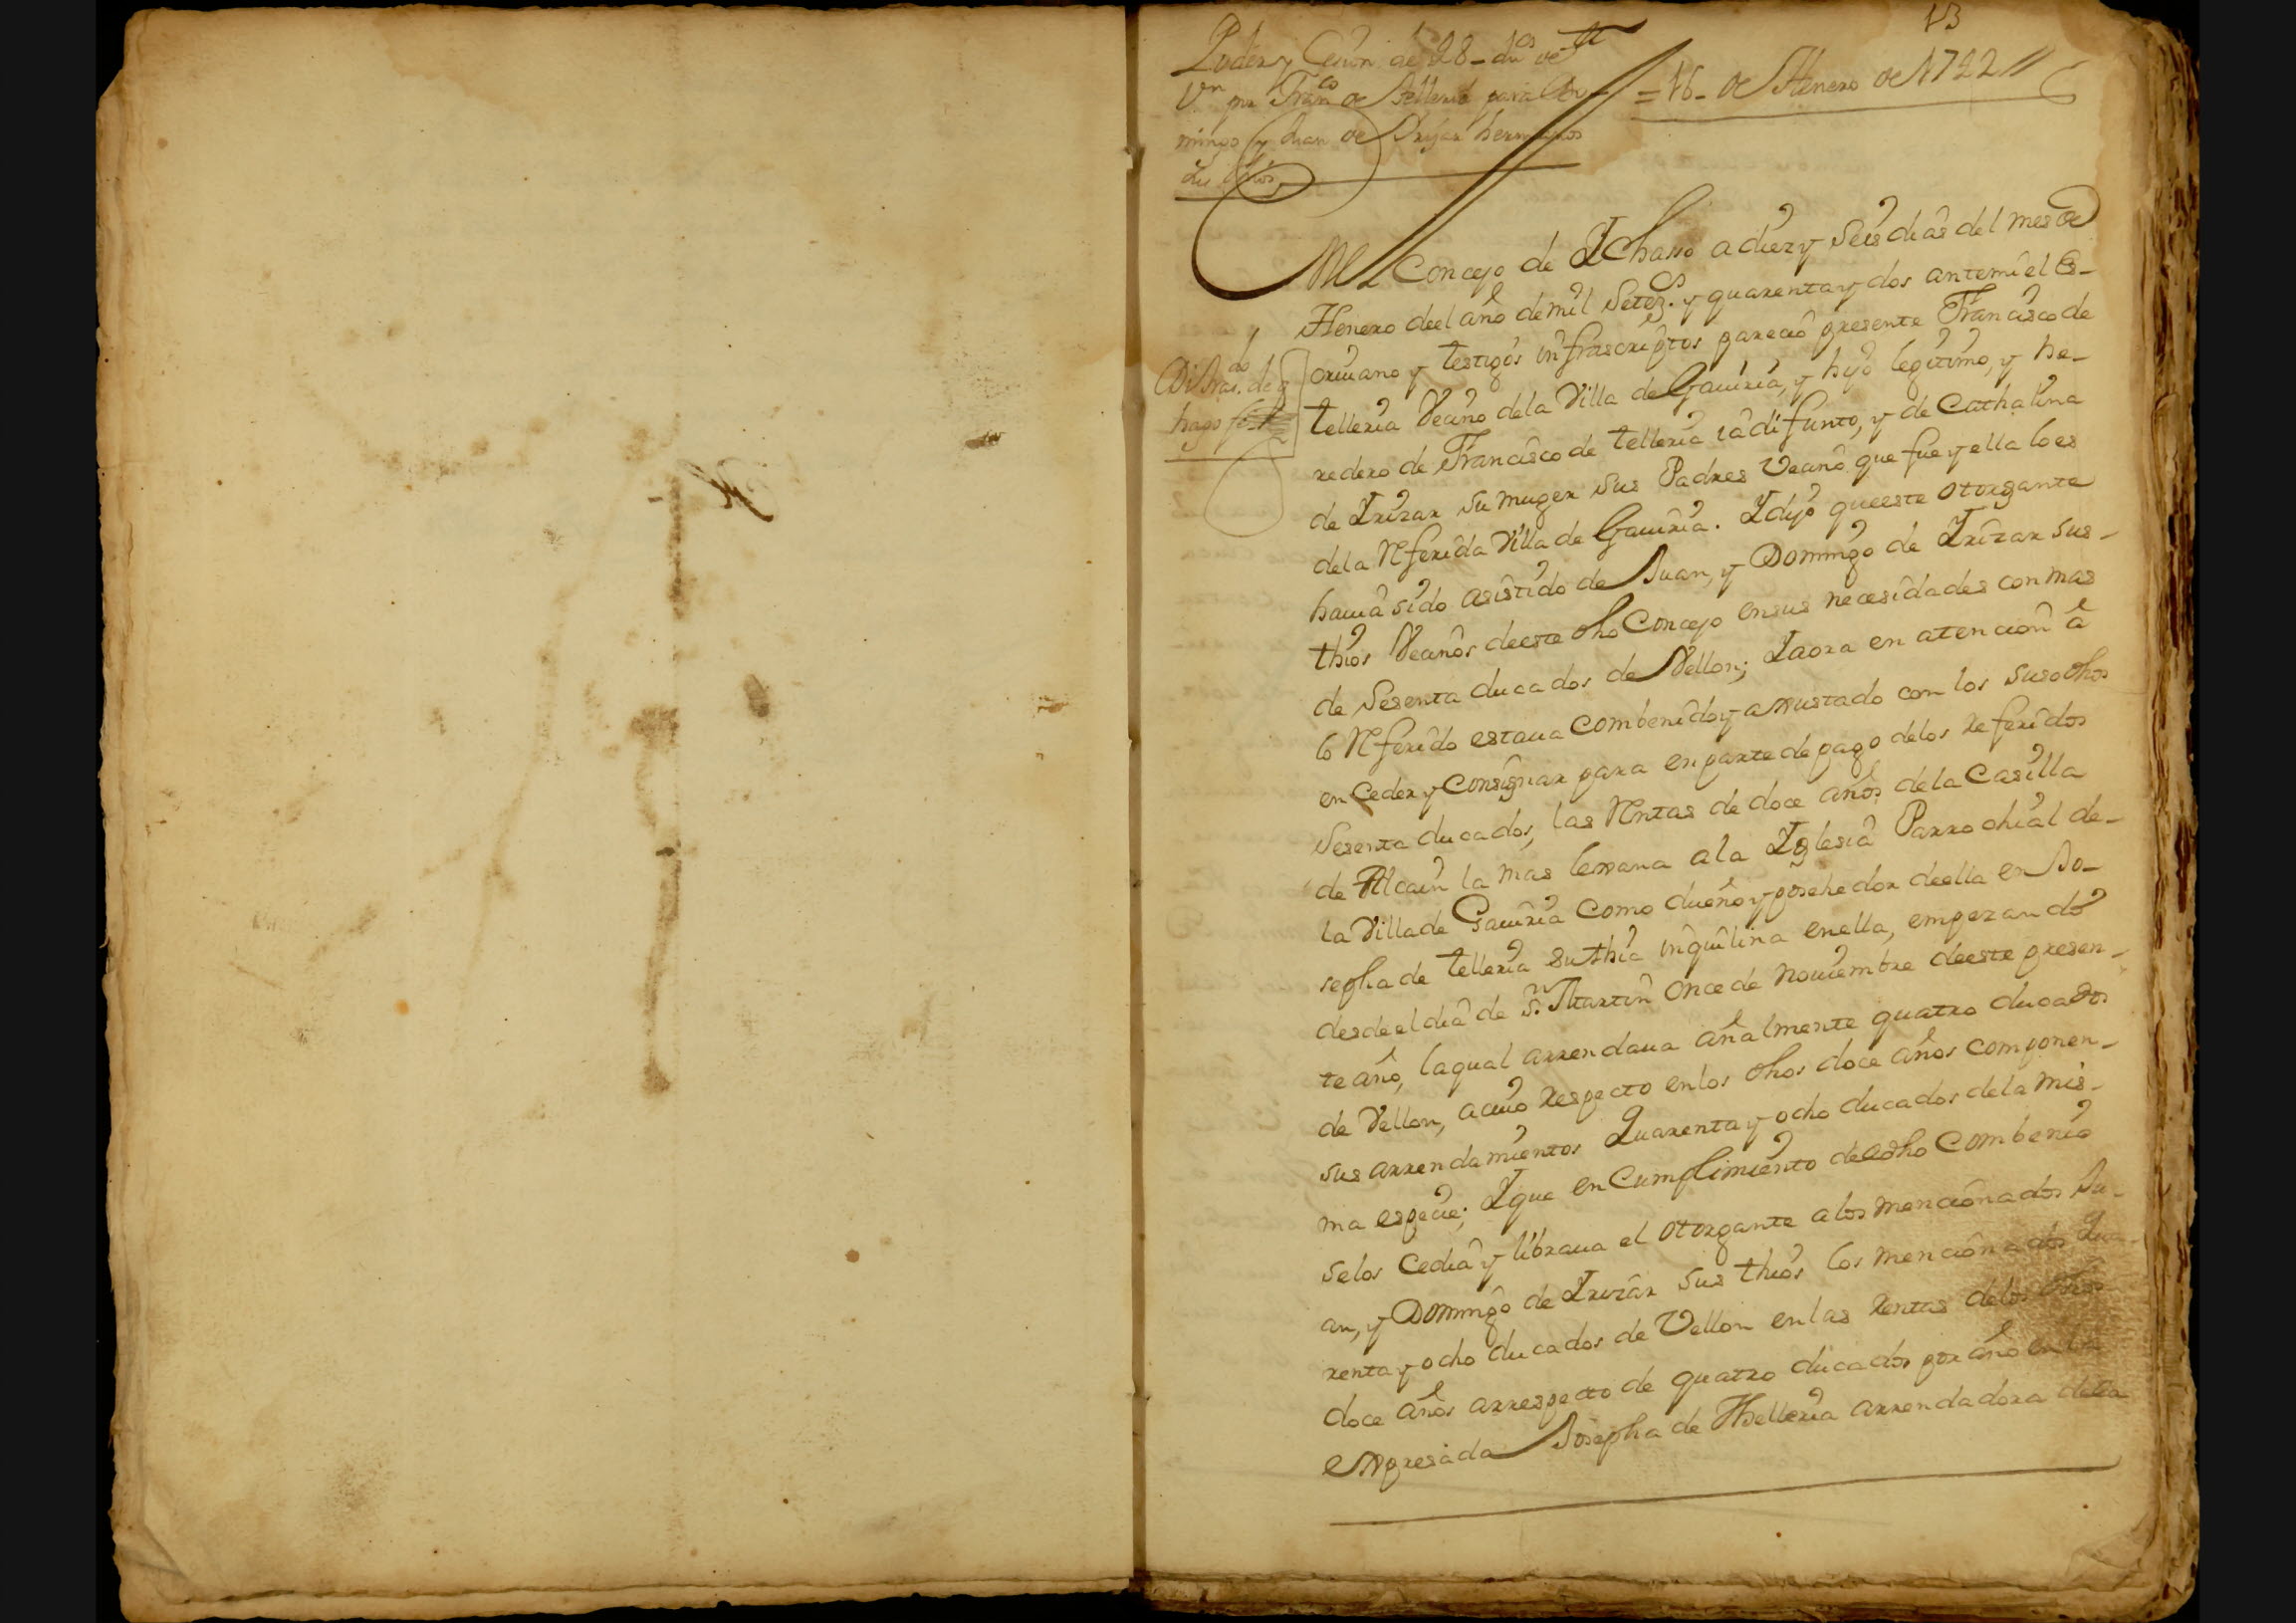 13
Poder y Cesion de 48 du.os de
V.n por Fran.co de Telleria para Do-
mingo y Juan de Yrizar hermanos
sus thios
= 16 - de Henero de 1742 //
En el Concejo de Ychasso a diez y seis dias del mes de
Henero deel año de mil Setez.s y quarenta y dos ante mi el es-
criuano y testigos infrascriptos pareciò presente Francisco de
telleria Vecino de la Villa de Gauiria, y hijo legitimo, y he-
redero de Francisco de telleria ia difunto, y de Cathalina
de Yrizar su muger sus Padres Vecino que fue y ella lo es
de la Referida Villa de Gauiria. Y dijo que este otorgante
hauia sido asistido de Juan, y Domingo de Yrizar sus
thios Vecinos de este dho Concejo en sus necesidades con mas
de Sesenta ducados de Vellon; Y aora en atencion â
lo Referido estaua combenido y axustado con los susodhos
en Ceder y Consignar para en parte de pago delos referidos
Sesenta ducados, las Rentas de doce años de la Casilla
de Alcain la mas lexana a la Yglesia Parrochial de
la Villa de Gauiria como dueño y posehedor deella en Jo-
sepha de telleria su thia inquilina en ella, empezando
desde el dia de S.n Martin once de Nouiembre de este presen-
te año, la qual arrendaua añalmente quatro ducados
de Vellon, acuio respecto en los dhos doce años componen
sus arrendamientos Quarenta y ocho ducados de la mis-
ma especie; Y que en Cumplimiento de esdho Combenio
se los Cedia y libraua el otorgante a los mencionados Ju-
an, y Domingo de Yrizar sus thios los mencionados Qua-
renta y ocho ducados de Vellon en las rentas delos dhos
doce años a rrespecto de quatro ducados por año en la
expresada Josepha de Thelleria arrendadora della